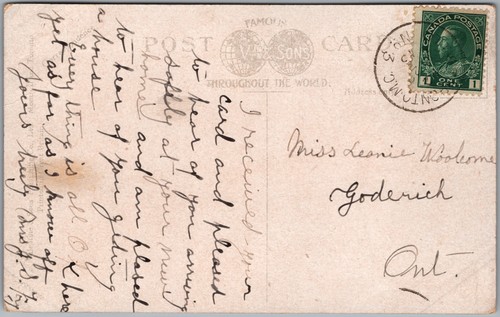 FAMOUS
POST CARD
& SONS
THROUGHOUT THE WORLD.
CANADA POSTAGE
1 ONE CENT 1
I received your
card and pleased
to hear of you arriving
safely at your new
home and am plased
to hear of you getting
a house
Every thing is all O K here
yet as far as I know off
Yours truly Mrs J.
Miss Leonie Woolcome
Goderich
Ont.